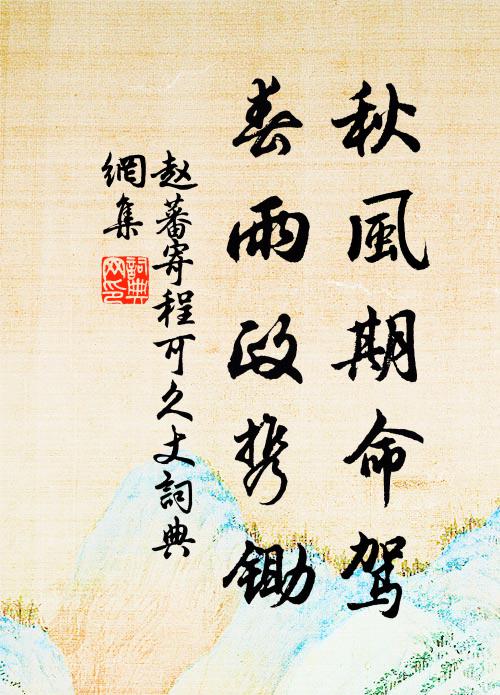 秋風期命駕
春雨政携鋤
赵蕃寄程可久丈詞典
網集
詞典网印